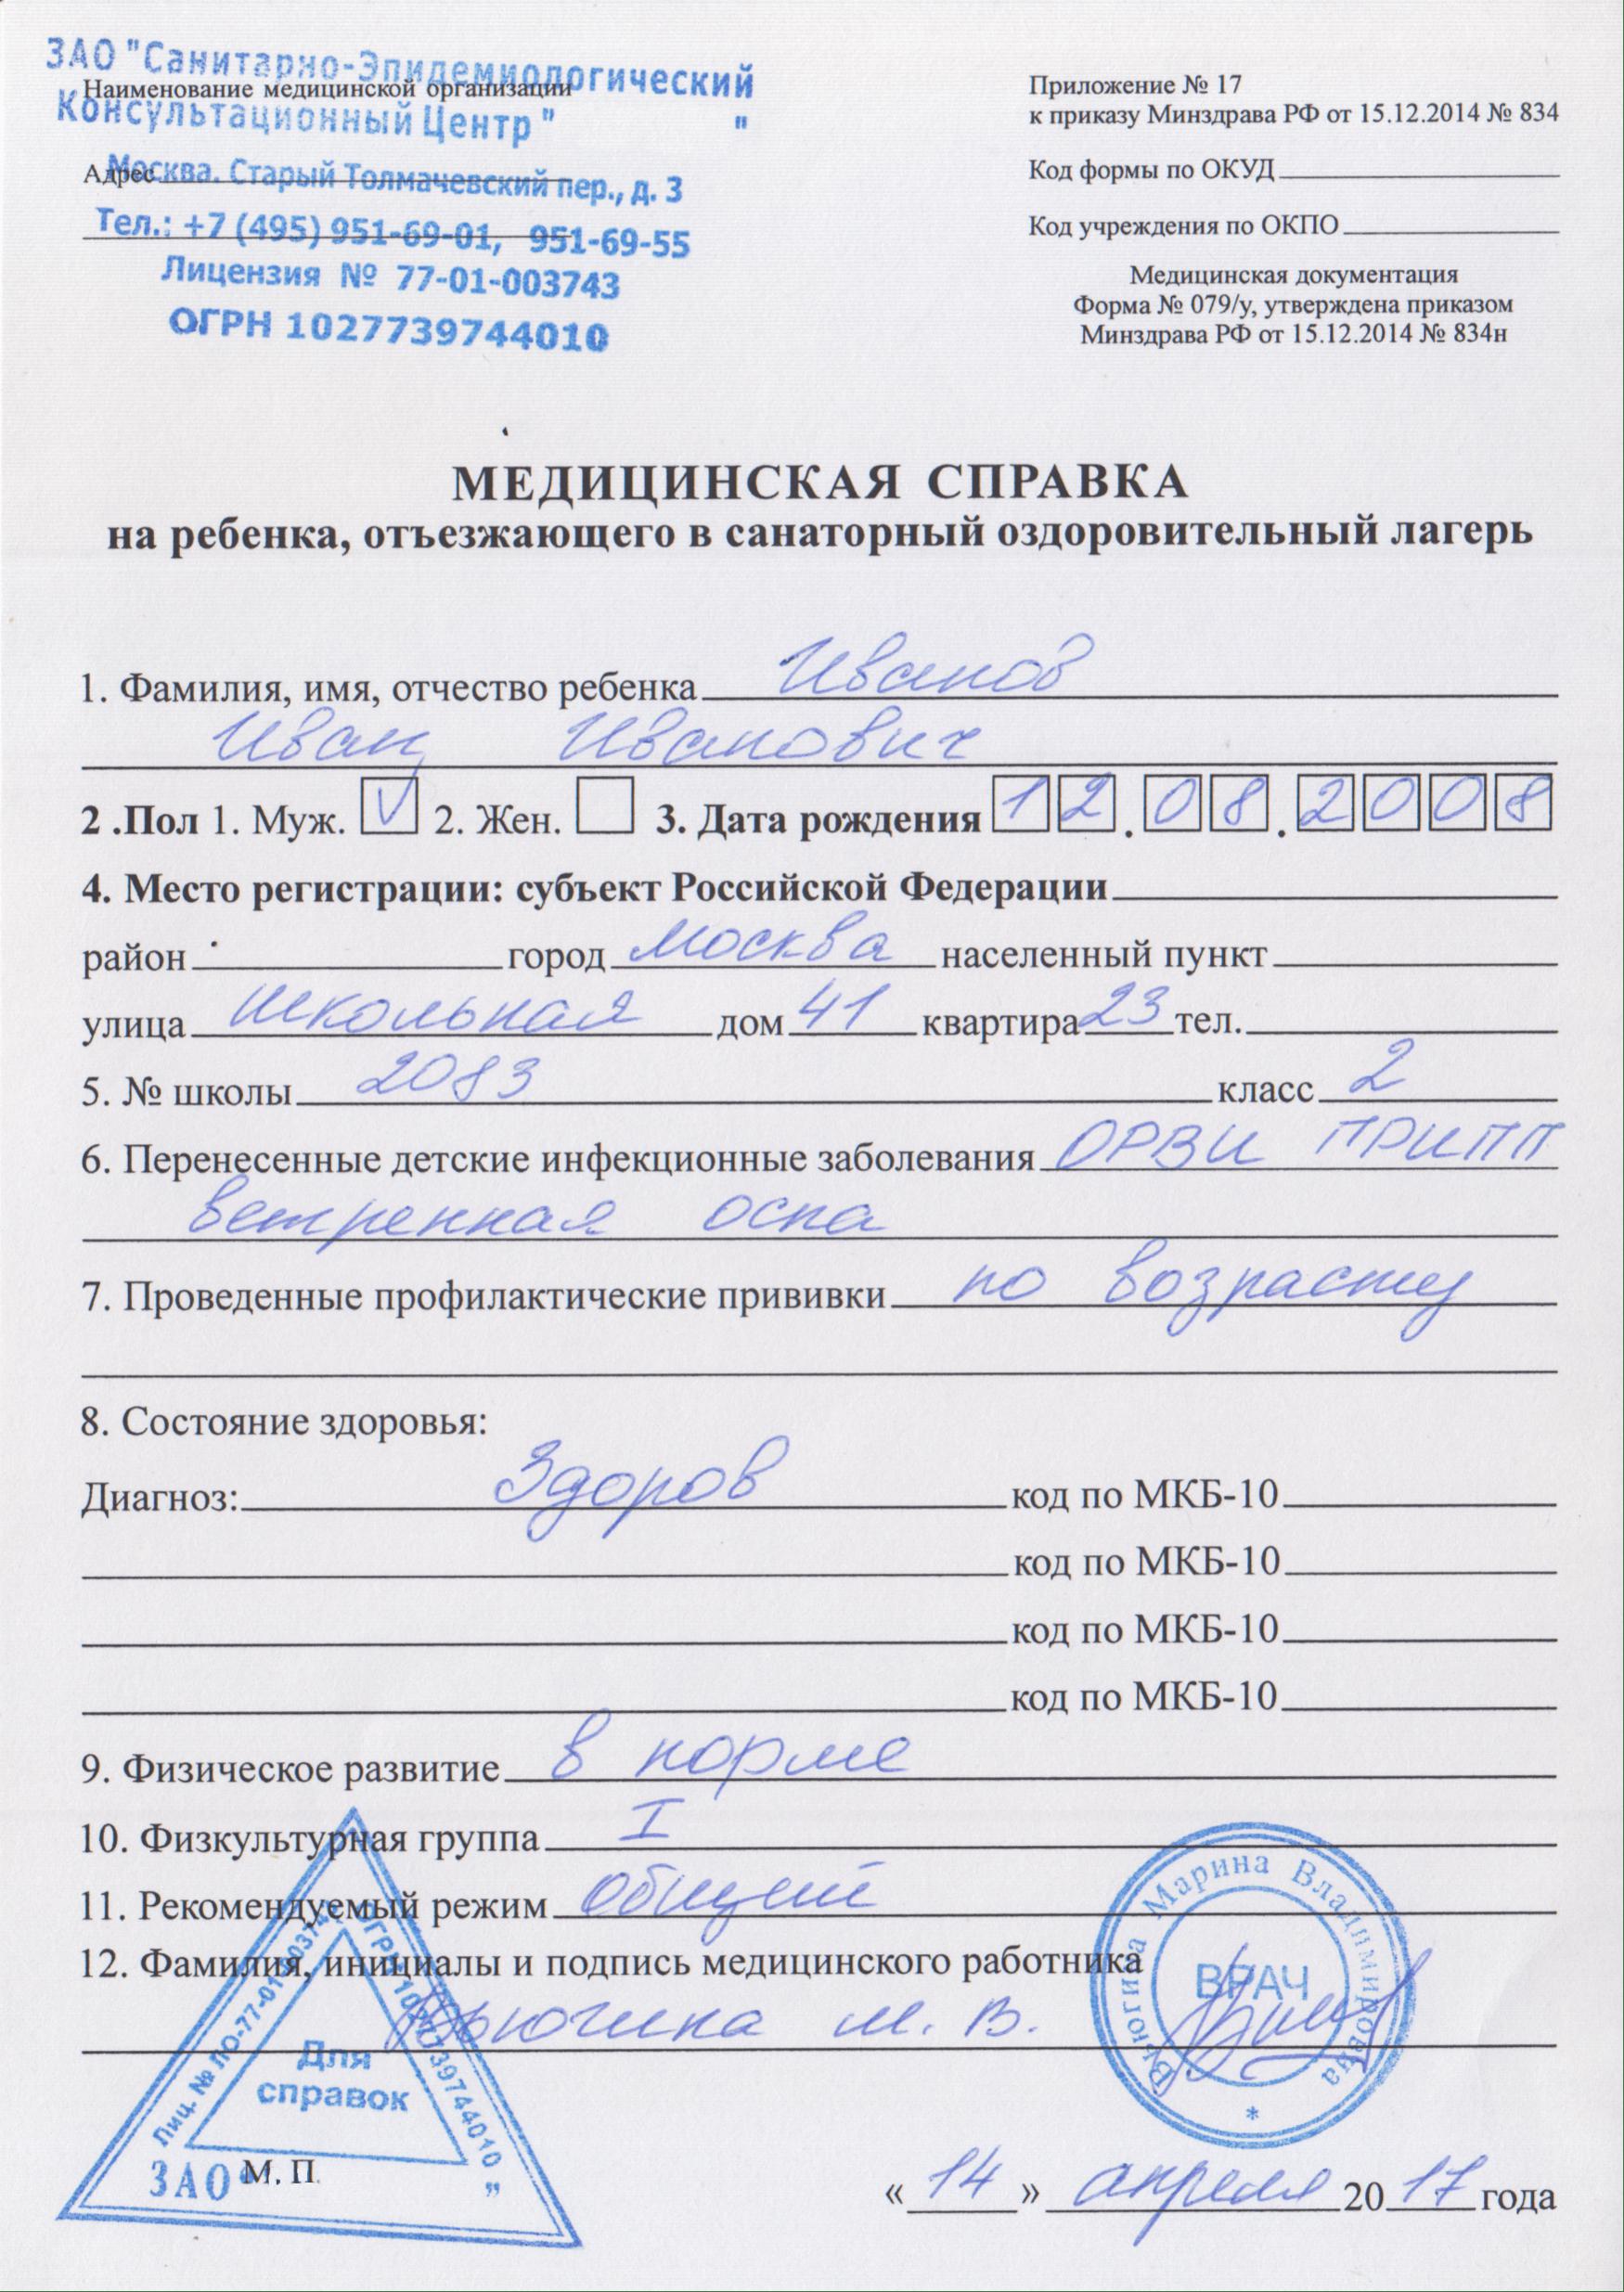 ЗАО "Санитарно-Эпидемиологический
Наименование медицинской организации
Консультационный Центр " "
Адрес
Москва. Старый Толмачевский пер., д. 3
Тел.: +7 (495) 951-69-01, 951-69-55
Лицензия № 77-01-003743
ОГРН 1027739744010
Приложение № 17
к приказу Минздрава РФ от 15.12.2014 № 834
Код формы по ОКУД
Код учреждения по ОКПО
Медицинская документация
Форма № 079/у, утверждена приказом
Минздрава РФ от 15.12.2014 № 834н
МЕДИЦИНСКАЯ СПРАВКА
на ребенка, отъезжающего в санаторный оздоровительный лагерь
1. Фамилия, имя, отчество ребенка Иванов
Иван Иванович
2 .Пол 1. Муж. V 2. Жен. 3. Дата рождения 12.08.2008
4. Место регистрации: субъект Российской Федерации
район город Москва населенный пункт
улица Школьная дом 41 квартира 23 тел.
5. № школы 2083 класс 2
6. Перенесенные детские инфекционные заболевания ОРВИ ГРИПП
ветренная оспа
7. Проведенные профилактические прививки по возрасту
8. Состояние здоровья:
Диагноз: Здоров код по МКБ-10
код по МКБ-10
код по МКБ-10
код по МКБ-10
9. Физическое развитие в норме
10. Физкультурная группа I
11. Рекомендуемый режим общий
12. Фамилия, инициалы и подпись медицинского работника
Вьюгина М. В.
Вьюгина Марина Владимировна *
ВРАЧ
Лиц. № ЛО-77-01-003743
ОГРН 1027739744010 "
Для
справок
ЗАО "
М. П.
« 14 » апреля 2017 года